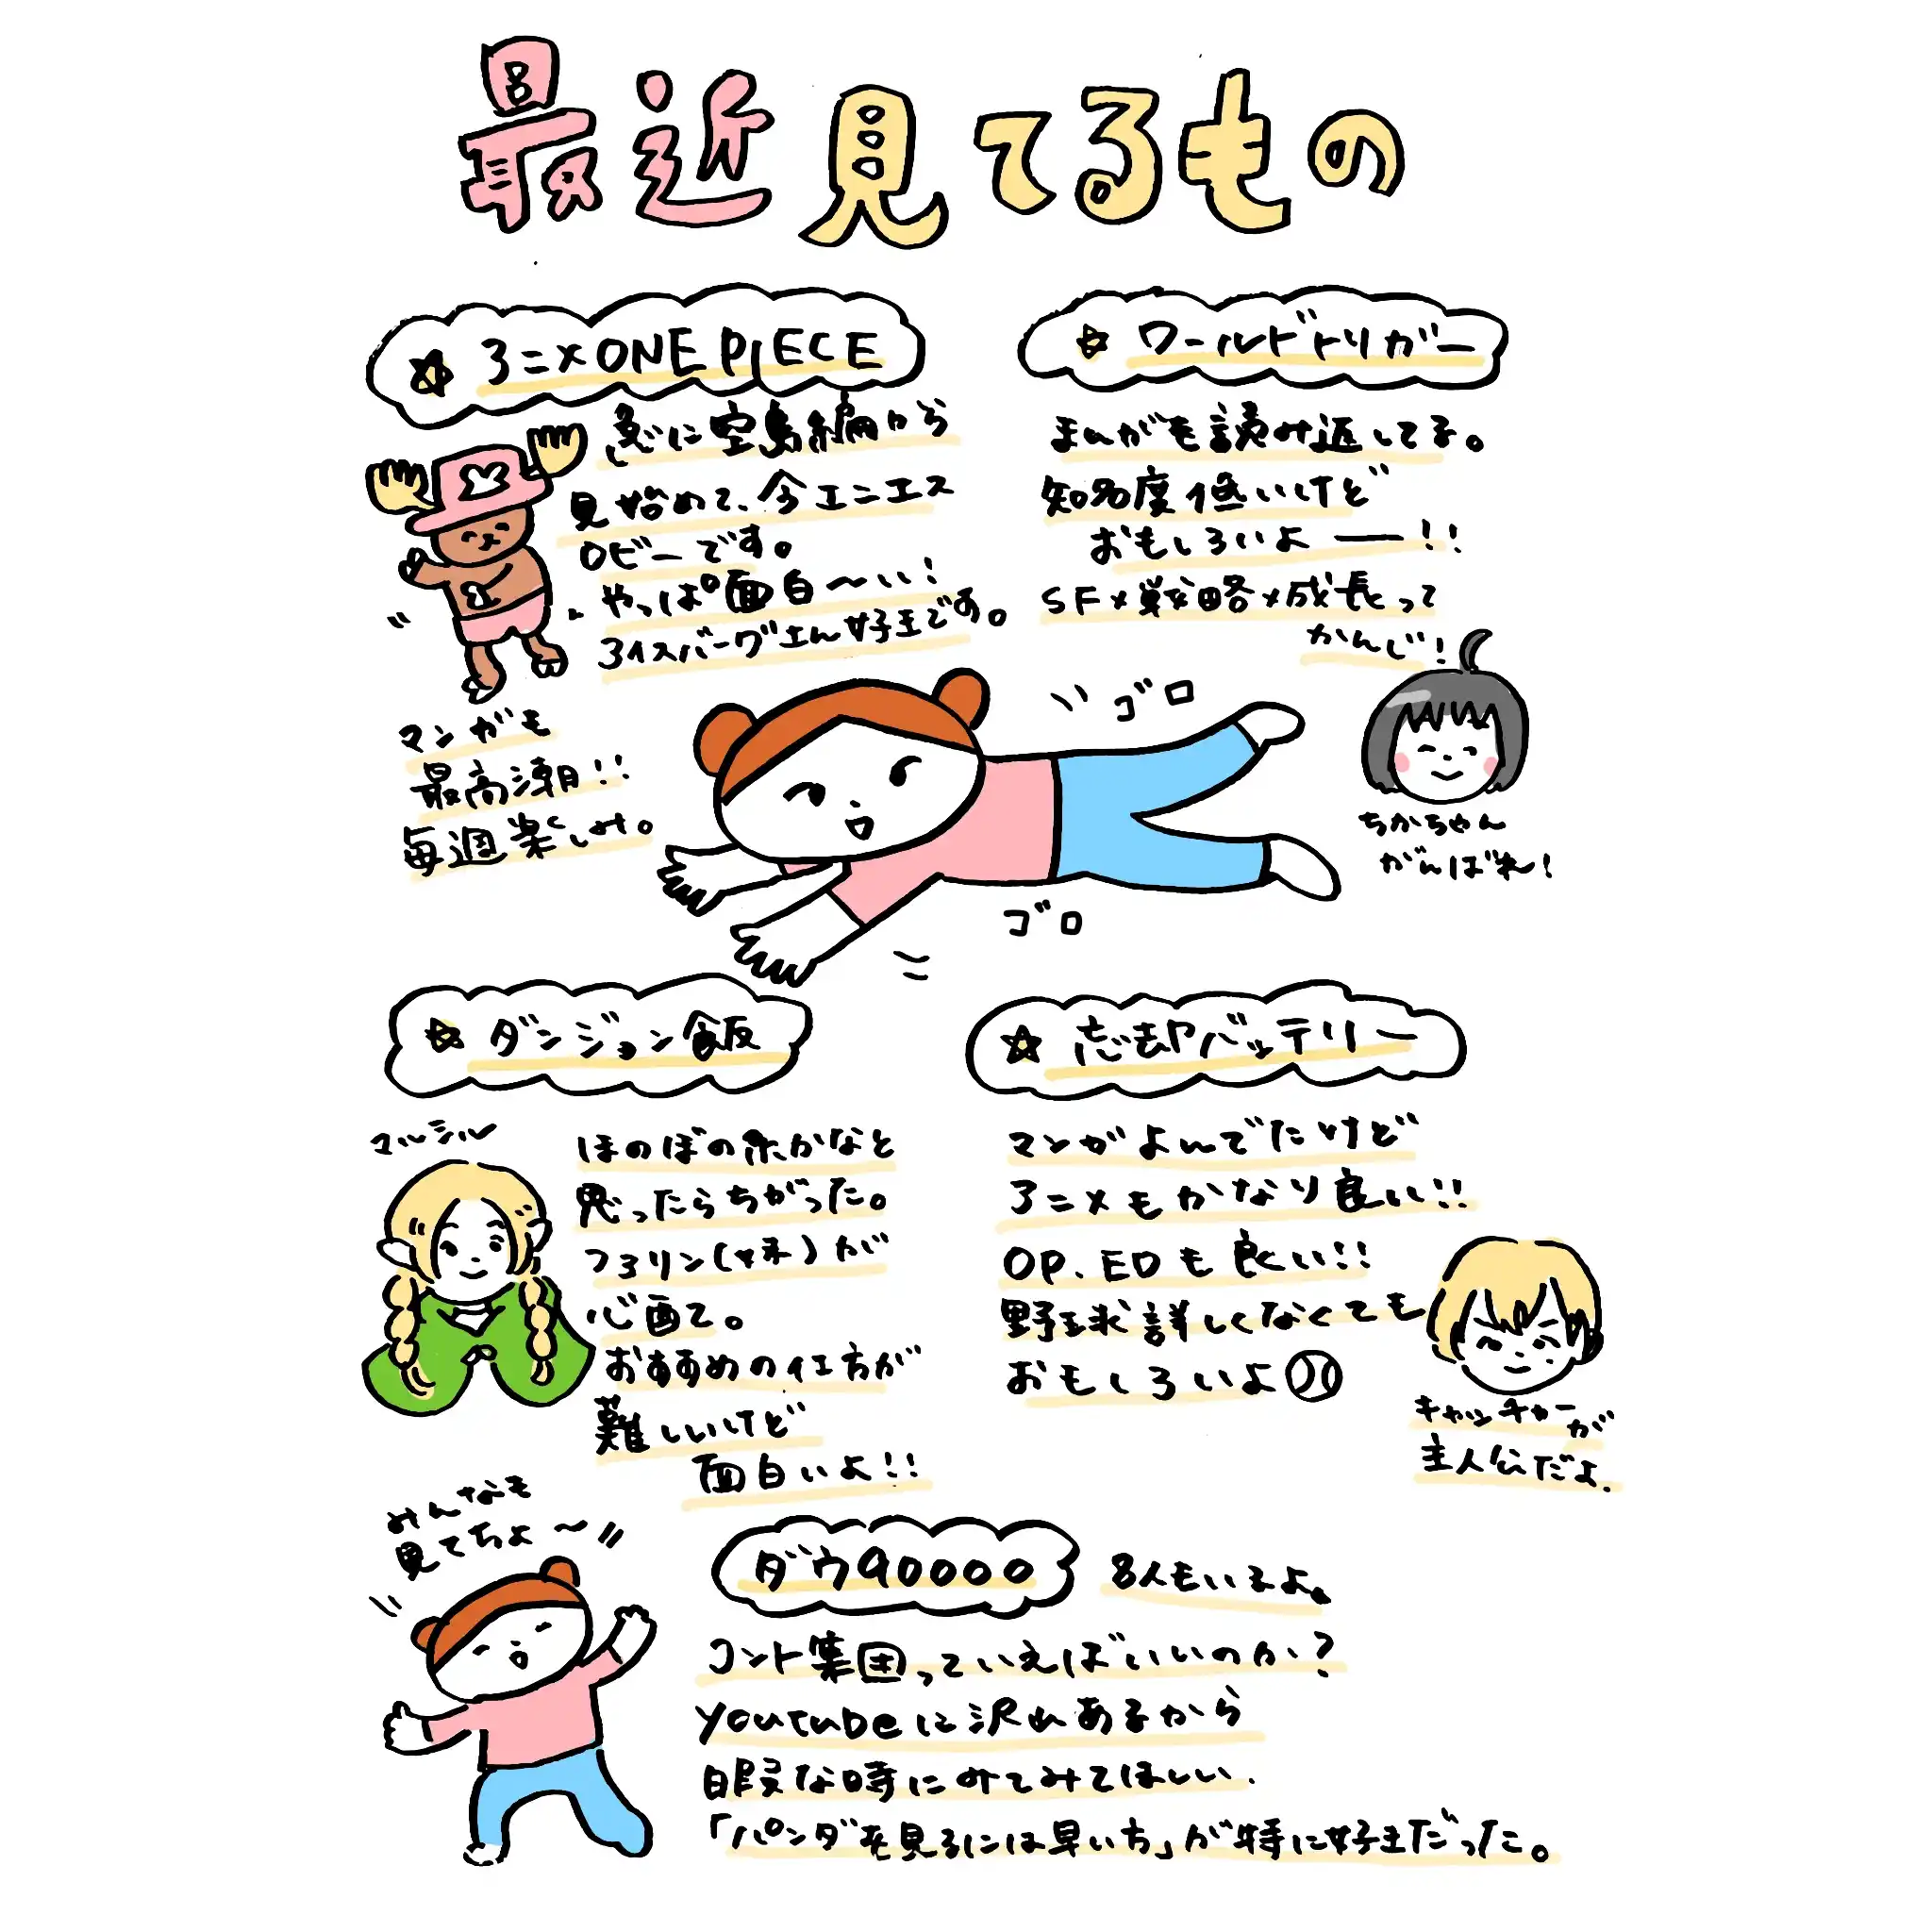 最近見てるもの
☆ アニメONE PIECE
急に空島編から
見始めて、今エニエス
ロビーです。
やっぱ面白〜い!
アイスバーグさん好きです。
マンガも
最高潮!!
毎週楽しみ。
☆ ワールドトリガー
まんがも読み返してる。
知名度低いけど
おもしろいよー!!
SF×戦略×成長って
かんじ!
ちかちゃん
がんばれ!
ゴロ
ゴロ
☆ ダンジョン飯
マルシル
ほのぼの系かなと
思ったらちがった。
ファリン(妹)が
心配で。
おすすめの仕方が
難しいけど
面白いよ!!
☆ 忘却バッテリー
マンガよんでたけど
アニメもかなり良い!!
OP、EDも良い!!
野球詳しくなくても
おもしろいよ
キャッチャーが
主人公だよ.
みんなも
見てちょ〜!!
ダウ90000
8人もいるよ。
コント集団っていえばいいのか?
youtubeに沢山あるから
暇な時にみてみてほしい.
「パンダを見るには早い方」が特に好きだった。